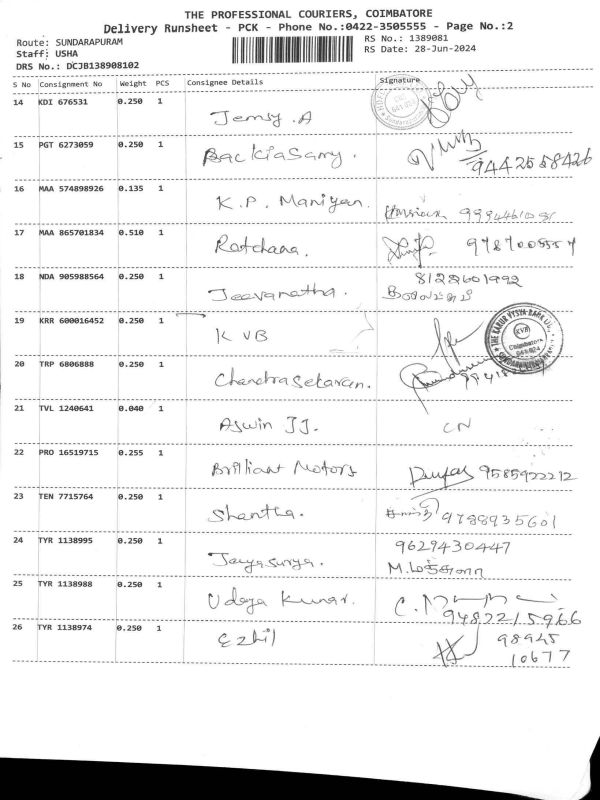 THE PROFESSIONAL COURIERS, COIMBATORE
Delivery Runsheet - PCK - Phone No.:0422-3505555 - Page No.:2
Route: SUNDARAPURAM
Staff: USHA
DRS No.: DCJB138908102
RS No.: 1389081
RS Date: 28-Jun-2024
S No Consignment No Weight PCS Consignee Details Signature
14 KDI 676531 0.250 1 Jemsy .A
15 PGT 6273059 0.250 1 Backiasamy. 9442558426
16 MAA 574898926 0.135 1 K.P. Maniyan.
17 MAA 865701834 0.510 1 Ratchana.
18 NDA 905988564 0.250 1 Jeevanatha. 8122601992
19 KRR 600016452 0.250 1 K VB
THE KARUR VYSYA BANK LTD. KVB Coimbatore 641 024
20 TRP 6806888 0.250 1 Chandrasekaran.
21 TVL 1240641 0.040 1 Aswin JJ. CN
22 PRO 16519715 0.255 1 Brilliant Motors 9585922212
23 TEN 7715764 0.250 1 Shantha. சாந்தி 9788935601
24 TYR 1138995 0.250 1 Jayasurya. 9629430447
25 TYR 1138988 0.250 1 Udaya Kumar. 9482215966
26 TYR 1138974 0.250 1 Ezhil 98945
10677